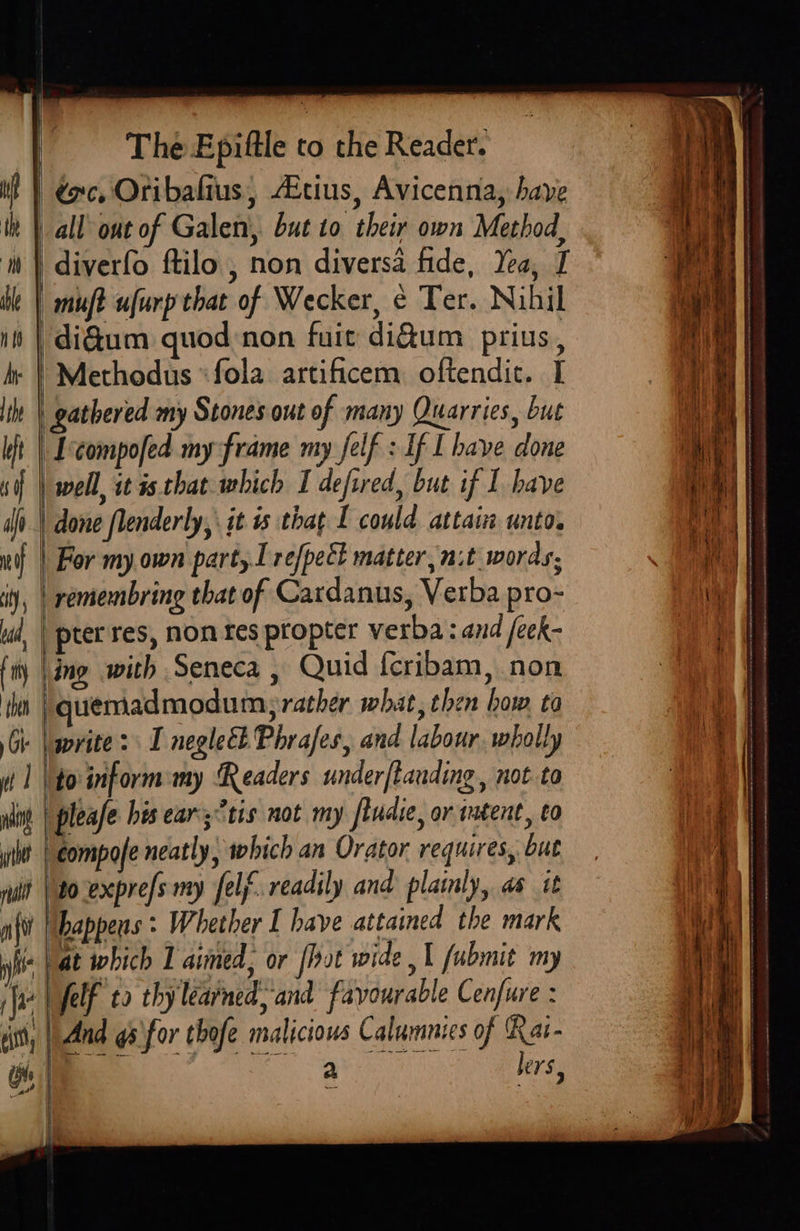 The Epiſtle to the Reader.
&c. Oribaſius, Ætius, Avicenna, have
all out of Galen, but to their own Method,
diverſo ſtilo, non diversâ fide, Yea, I
muſt uſurp that of Wecker, è Ter. Nihil
dictum quod non fuit dictum prius,
Methodus ſola artificem oſtendit. I
gathered my Stones out of many Quarries, but
I compoſed my frame my ſelf : If I have done
well, it is that which I deſired, but if I have
done ſlenderly, it is that I could attain unto.
For my own part, I reſpect matter, not words;
remembring that of Cardanus, Verba pro-
pter res, non res propter verba : and ſeek-
ing with Seneca, Quid ſcribam, non
quemadmodum; rather what, then how to
write : I neglect Phraſes, and labour wholly
to inform my Readers underſtanding, not to
pleaſe his ear; 'tis not my ſtudie, or intent, to
compoſe neatly, which an Orator requires, but
to expreſs my ſelf readily and plainly, as it
happens : Whether I have attained the mark
at which I aimed, or ſhot wide, I ſubmit my
ſelf to thy learned, and favourable Cenſure :
And as for thoſe malicious Calumnies of Rai-
a lers,